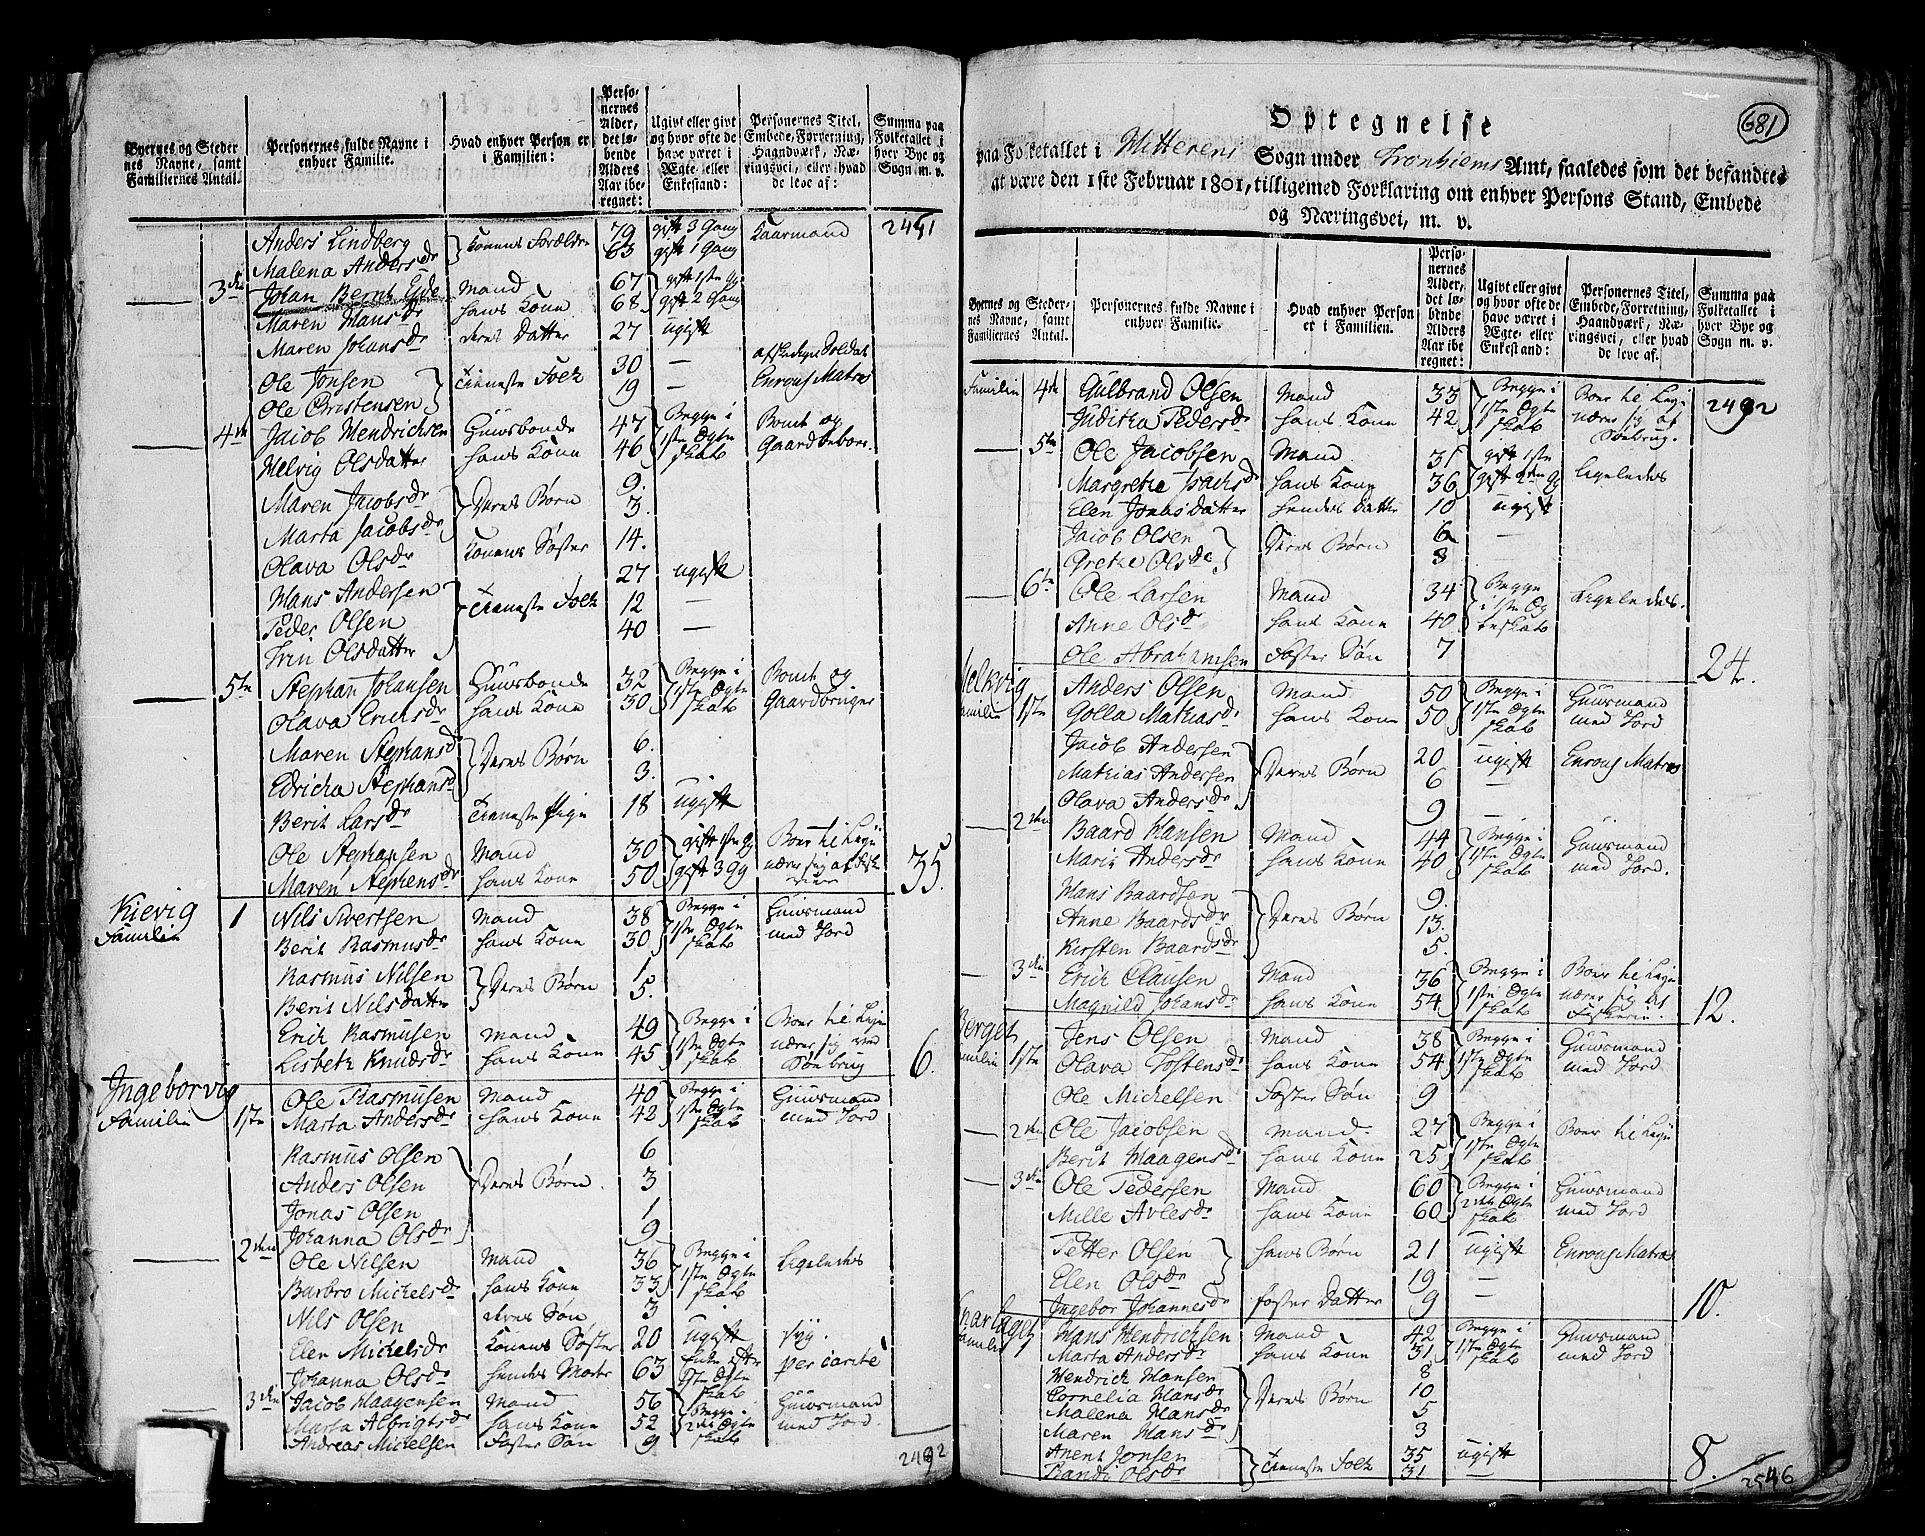 Byernes og Steder nes Navne, samt Familiernes Antal.
Personernes fulde Navne i enhver Familie.
Hvad enhver Person er i Familien:
Perso- nernes Alder, det lø- bende Alders Aar ibe- regnet:
Ugivt eller givt og hvor ofte de have været i Ægte- eller Enkestand:
Personernes Titel, Embede, Forretning, Haandværk, Næ- ringsvei, eller hvad de leve af:
Summa paa Folketallet i hver Bye og Sogn m. v.
Anders Lindberg } Konens Forældre 79 gift 3 Gang Kaarmand 2451
Malena Andersdr 63 gift 1 Gang
3die Johan Bernt Eide Mand 67 gift 1ste Gg
Maren Hansdr hans Kone 68 gift 2 Gang
Maren Johansdr deres Datter 27 ugift
Ole Jonsen } Tieneste Folk 30 — afskediget Soldat
Ole Christensen 19 — Enroul Matros
4de Jacob Hendrichsen Huusbonde 47 Begge i 1ste Ægteskab Bonde og Gaardbeboer
Helvig Olsdatter hans Kone 46
Maren Jacobsdr } Deres Børn 9.
Marta Jacobsdr 3.
Olava Olsdr Konens Søster 14.
Hans Andersen } Tieneste Folk 27 ugift
Peder Olsen 12 —
Trin Olsdatter 40 —
5te Stephan Johansen Huusbonde 32 Begge i 1ste Ægteskab Bonde og Gaardbruger
Olava Erichsdr hans Kone 30
Maren Stephansdr } Deres Børn 6.
Edricha Stephansdr 3.
Berit Larsdr Tieneste Pige 18 ugift
Ole Stephansen Mand 30 gift 1ste Gg Boer til Leye nærer sig af Fiskerie
Maren Stephensdr hans Kone 50 gift 3 Gg 35.
Kievig Familie 1 Nils Sivertsen Mand 38 Begge i 1ste Ægteskab Huusmand med Jord
Berit Rasmusdr hans Kone 30
Rasmus Nilsen } Deres Børn 1.
Berit Nilsdatter 5.
Erich Rasmusen Mand 49 Begge i 1ste Ægteskab Boer til Leye nærer sig ved Søebrug
Lisbeth Knudsdr hans Kone 45 6.
Ingeborvig Familie 1ste Ole Rasmusen Mand 40 Begge i 1ste Ægteskab Huusmand med Jord
Marta Andersdr hans Kone 42
Rasmus Olsen } Deres Børn 6
Anders Olsen 3
Jonas Olsen 1
Johanna Olsdr 9
2den Ole Nilsen Mand 36 Begge i 1ste Ægteskab Ligeledes
Barbro Michelsdr hans Kone 33
Nils Olsen deres Søn 3
Elen Michelsdr Konens Søster 20 ugift syg.
Johanna Olsdr hendes Moder 63 Enke efter 1ste Ægteskab per carité
3die Jacob Haagensen Mand 56 Begge i 2det Ægteskab Huusmand med Jord.
Marta Albrigtsdr hans Kone 52
Andreas Michelsen Foster Søn 9
2492
681
Optegnelse
paa Folketallet i Hitterens Sogn under Tronhiems Amt, saaledes som det befandtes
at være den 1ste Februar 1801, tilligemed Forklaring om enhver Persons Stand, Embede
og Næringsvei, m. v.
Byernes og Steder- nes Navne, samt Familiernes Antal.
Personernes fulde Navne i enhver Familie.
Hvad enhver Person er i Familien.
Perso- nernes Alder, det lø- bende Alders Aar ibe- regnet:
Ugivt eller givt og hvor ofte de have været i Ægte- eller Enkestand:
Personernes Titel, Embede, Forretning, Haandværk, Næ- ringsvei, eller hvad de leve af.
Summa paa Folketallet i hver Bye og Sogn m. v.
Familie 4de Gulbrand Olsen Mand 33 Begge i 1ste Ægteskab Boer til Leye nærer sig af Søebrug. 2492
Juditha Pedersdr hans Kone 42
5te Ole Jacobsen Mand 31 gift 1ste Ligeledes
Margrethe Isachsdr hans Kone 36 gift 2den Gg
Elen Jonasdatter hendes Datter 10 ugift
Jacob Olsen } Deres Børn 6 —
Grethe Olsdr 8
6te Ole Larsen Mand 34 Begge i 1ste Ægteskab Ligeledes.
Anne Olsdr hans Kone 40
Ole Abrahamsen Foster Søn 7 24.
Helkvig Familie 1ste Anders Olsen Mand 50 Begge i 1ste Ægteskab Huusmand med Jord
Golla Mathiasdr hans Kone 50
Jacob Andersen } Deres Børn 20 ugift Enroul Matros
Mathias Andersen 6
Olava Andersdr 9 —
2den Baard Hansen Mand 44 Begge i 1ste Ægteskab Huusmand med Jord.
Marit Andersdr hans Kone 40
Hans Baardsen } Deres Børn 9.
Anne Baardsdr 13.
Kirsten Baardsdr 5.
3die Erich Clausen Mand 36 Begge i 1ste Ægteskab Boer til Leye nærer sig ved Fiskerie.
Magnild Johansdr hans Kone 54 12.
Berget Familie 1ste Jens Olsen Mand 38 Begge i 1ste Ægteskab Huusmand med Jord
Olava Tostensdr hans Kone 54
Ole Michelsen Foster Søn 9
2den Ole Jacobsen Mand 27 Begge i 1ste Ægteskab Boer til Leye
Berit Haagensdr hans Kone 25
3die Ole Pedersen Mand 60 Begge i 2det Ægteskab Huusmand med Jord
Mille Avlesdr hans Kone 60
Petter Olsen } hans Børn 21 ugift Enroul Matros
Elen Olsdr 19 —
Ingebor Johannesdr foster Datter 9 10.
Familie 1 Hans Hendrichsen Mand 42 Begge i 1ste Ægteskab Huusmand med Jord
Marta Andersdr hans Kone 31
Hendrich Hansen } Deres Børn 8
Cornelia Hansdr 10
Malena Hansdr 5
Maren Hansdr 3
Anent Jonsen } Tieneste Folk 35 ugift
Randi Olsdr 31 — 8.
2546